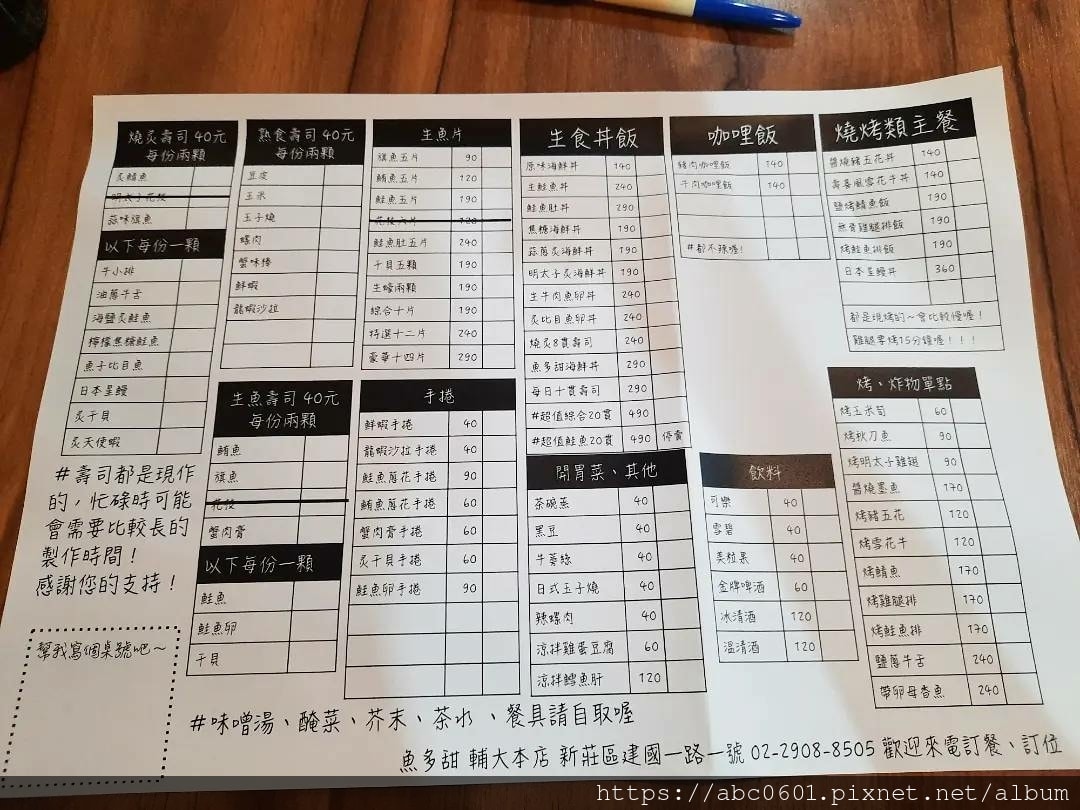 燒炙壽司 40元
每份兩顆
炙鯖魚
明太子花枝
蒜味旗魚
以下每份一顆
牛小排
油蔥牛舌
海鹽炙鮭魚
檸檬焦糖鮭魚
魚子比目魚
日本星鰻
炙干貝
炙天使蝦
#壽司都是現作
的,忙碌時可能
會需要比較長的
製作時間!
感謝您的支持!
幫我寫個桌號吧~
熟食壽司 40元
每份兩顆
豆皮
玉米
玉子燒
螺肉
蟹味棒
鮮蝦
龍蝦沙拉
生魚壽司 40元
每份兩顆
鮪魚
旗魚
花枝
蟹肉膏
以下每份一顆
鮭魚
鮭魚卵
干貝
生魚片
旗魚五片 90
鮪魚五片 120
鮭魚五片 190
花枝六片 120
鮭魚肚五片 240
干貝五顆 190
生蠔兩顆 190
綜合十片 190
特選十二片 240
豪華十四片 290
手捲
鮮蝦手捲 40
龍蝦沙拉手捲 40
鮭魚蔥花手捲 60
鮪魚蔥花手捲 60
蟹肉膏手捲 60
炙干貝手捲 60
鮭魚卵手捲 90
生食丼飯
原味海鮮丼 140
生鮭魚丼 240
鮭魚肚丼 290
焦糖海鮮丼 190
蒜蔥炙海鮮丼 190
明太子炙海鮮丼 190
生牛肉魚卵丼 240
炙比目魚卵丼 240
燒炙8貫壽司 240
魚多甜海鮮丼 290
每日十貫壽司 290
#超值綜合20貫 490
#超值鮭魚20貫 490 停賣
開胃菜、其他
茶碗蒸 40
黑豆 40
牛蒡絲 40
日式玉子燒 40
辣螺肉 40
涼拌雞蛋豆腐 60
涼拌鱈魚肝 120
咖哩飯
豬肉咖哩飯 140
牛肉咖哩飯 140
#都不辣喔!
飲料
可樂 40
雪碧 40
美粒果 40
金牌啤酒 60
冰清酒 120
溫清酒 120
燒烤類主餐
醬燒豬五花丼 140
壽喜風雪花牛丼 140
鹽烤鯖魚飯 190
無骨雞腿排飯 190
烤鮭魚排飯 190
日本星鰻丼 360
都是現烤的~會比較慢喔!
雞腿要烤15分鐘喔!!!
烤、炸物單點
烤玉米筍 60
烤秋刀魚 90
烤明太子雞翅 90
醬燒墨魚 170
烤豬五花 120
烤雪花牛 120
烤鯖魚 170
烤雞腿排 170
烤鮭魚排 170
鹽蔥牛舌 240
帶卵母香魚 240
#味噌湯、醃菜、芥末、茶水、餐具請自取喔
魚多甜 輔大本店 新莊區建國一路一號 02-2908-8505 歡迎來電訂餐、訂位
https://abc0601.pixnet.net/album